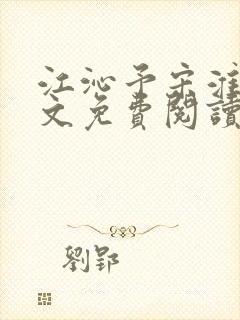 江沁予宋淮
文免費閱讀
劉郢